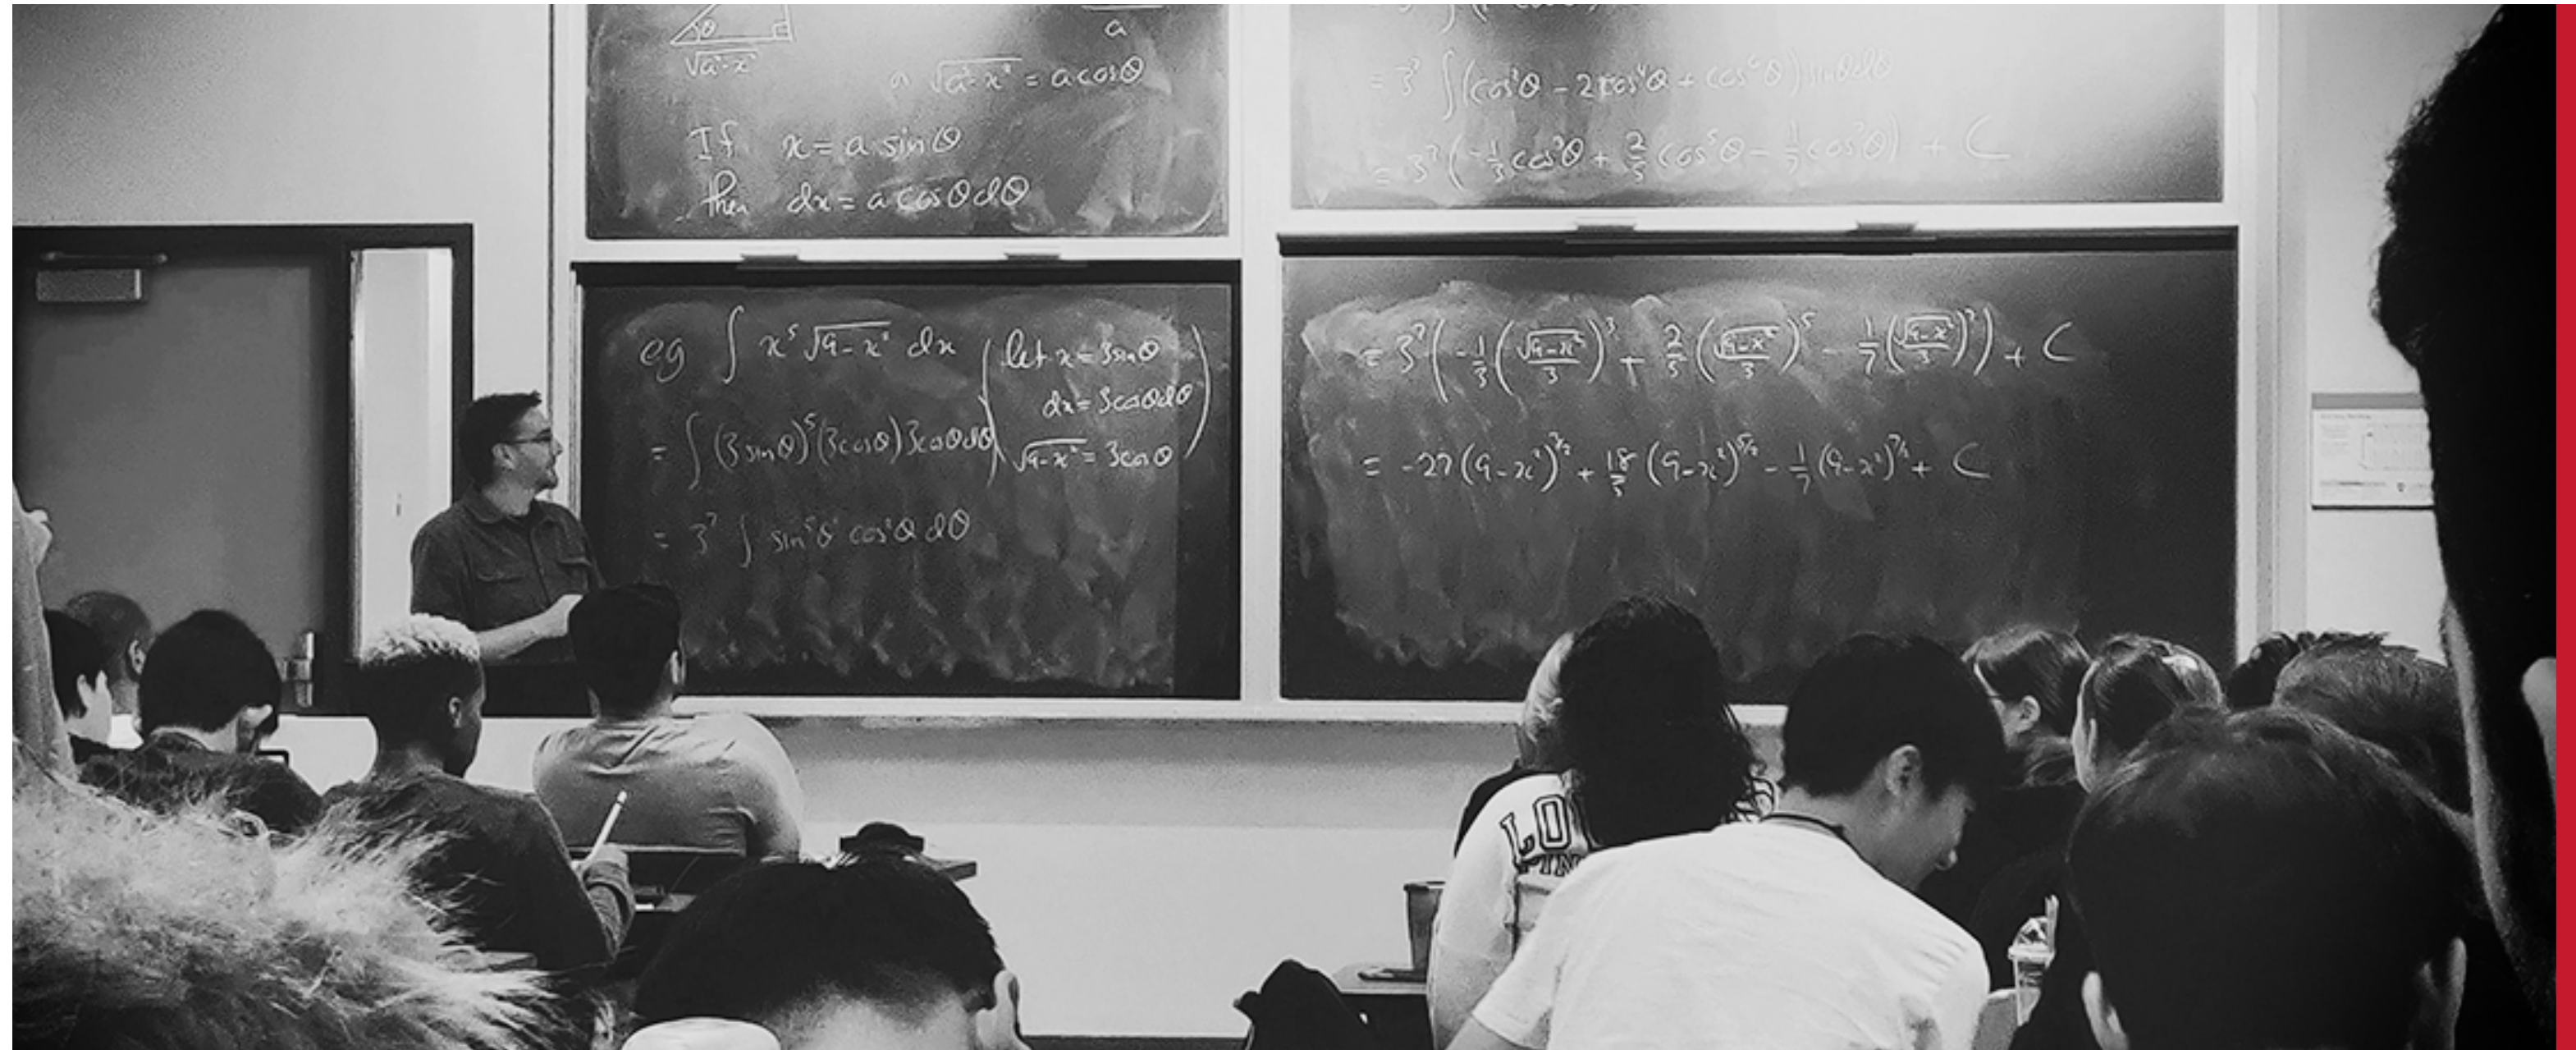 θ
√a²-x²
a
√a²-x² = a cosθ
If x = a sinθ
then dx = a cosθ dθ
eg ∫ x⁵ √9-x² dx (let x = 3sinθ
dx = 3cosθdθ
= ∫ (3sinθ)⁵ (3cosθ) 3cosθdθ
√9-x² = 3cosθ)
= 3⁷ ∫ sin⁵θ cos²θ dθ
= 3⁷ ∫ (cos²θ - 2cos⁴θ + cos⁶θ) sinθdθ
= 3⁷ (-1/3 cos³θ + 2/5 cos⁵θ - 1/7 cos⁷θ) + C
= 3⁷ (-1/3 (√9-x²/3)³ + 2/5 (√9-x²/3)⁵ - 1/7 (√9-x²/3)⁷) + C
= -27 (9-x²)^3/2 + 18/5 (9-x²)^5/2 - 1/7 (9-x²)^7/2 + C